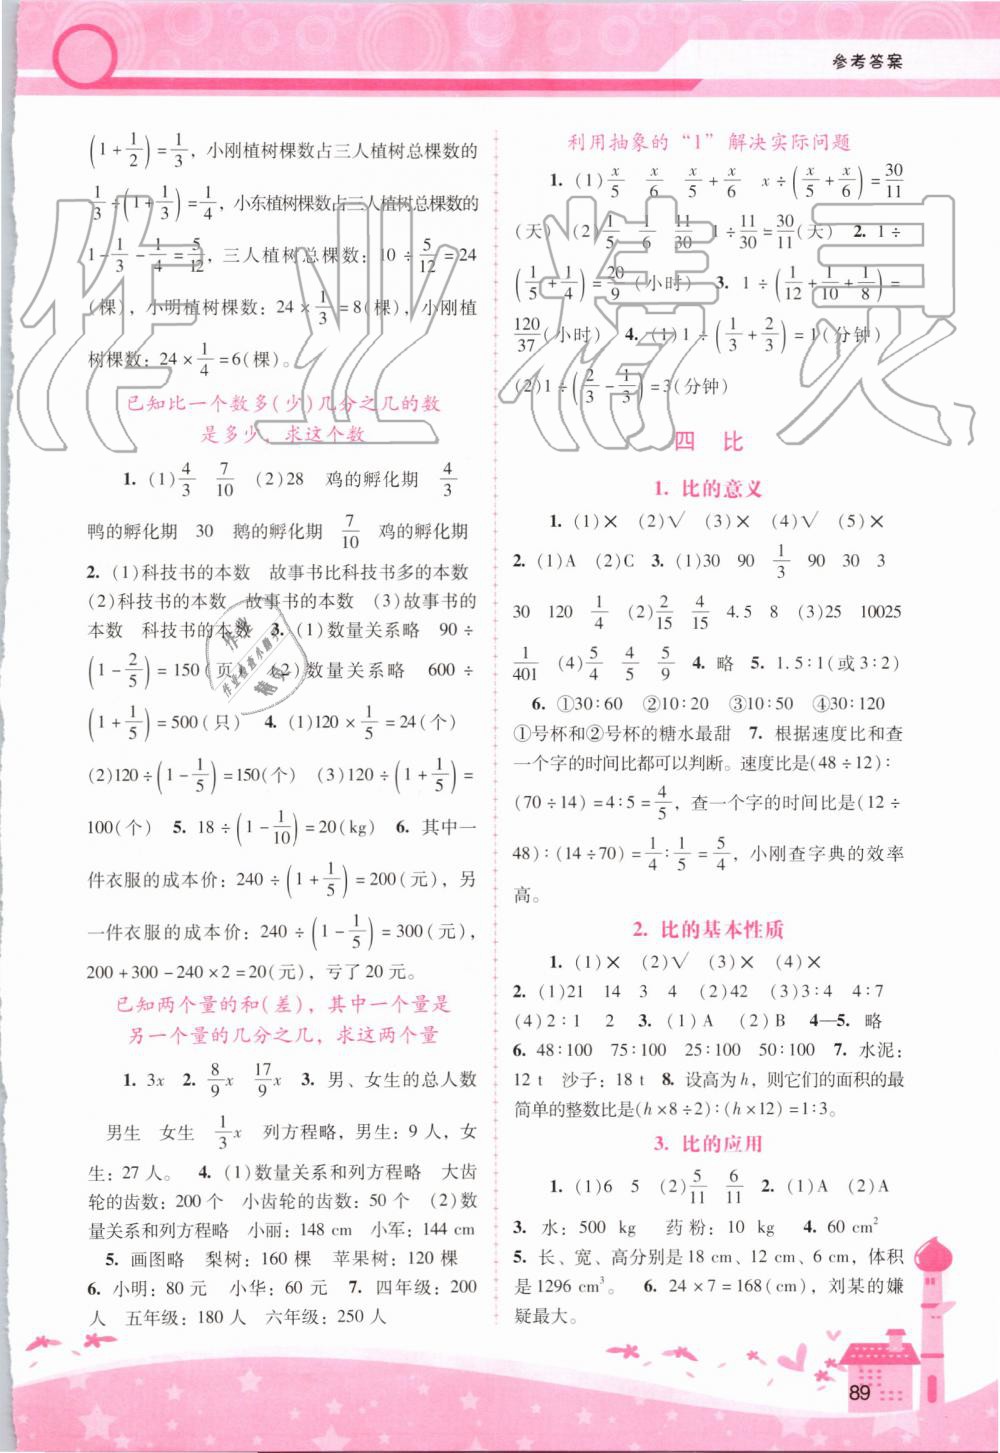 参考答案
(1+1/2)=1/3，小刚植树棵数占三人植树总棵数的
1/3÷(1+1/3)=1/4，小东植树棵数占三人植树总棵数的
1-1/3-1/4=5/12，三人植树总棵数：10÷5/12=24
(棵)，小明植树棵数：24×1/3=8(棵)，小刚植
树棵数：24×1/4=6(棵)。
已知比一个数多(少)几分之几的数
是多少，求这个数
1. (1)4/3 7/10 (2)28 鸡的孵化期 4/3
鸭的孵化期 30 鹅的孵化期 7/10 鸡的孵化期
2. (1)科技书的本数 故事书比科技书多的本数
(2)科技书的本数 故事书的本数 (3)故事书的
本数 科技书的本数 3. (1)数量关系略 90÷
(1-2/5)=150(页) (2)数量关系略 600÷
(1+1/5)=500(只) 4. (1)120×1/5=24(个)
(2)120÷(1-1/5)=150(个) (3)120÷(1+1/5)=
100(个) 5. 18÷(1-1/10)=20(kg) 6. 其中一
件衣服的成本价：240÷(1+1/5)=200(元)，另
一件衣服的成本价：240÷(1-1/5)=300(元)，
200+300-240×2=20(元)，亏了20元。
已知两个量的和(差)，其中一个量是
另一个量的几分之几，求这两个量
1. 3x 2. 8/9x 17/9x 3. 男、女生的总人数
男生 女生 1/3x 列方程略，男生：9人，女
生：27人。 4. (1)数量关系和列方程略 大齿
轮的齿数：200个 小齿轮的齿数：50个 (2)数
量关系和列方程略 小丽：148 cm 小军：144 cm
5. 画图略 梨树：160棵 苹果树：120棵
6. 小明：80元 小华：60元 7. 四年级：200
人 五年级：180人 六年级：250人
利用抽象的“1”解决实际问题
1. (1)x/5 x/6 x/5+x/6 x÷(x/5+x/6)=30/11
(天) (2)1/5 1/6 11/30 1÷11/30=30/11(天) 2. 1÷
(1/5+1/4)=20/9(小时) 3. 1÷(1/12+1/10+1/8)=
120/37(小时) 4. (1)1÷(1/3+2/3)=1(分钟)
(2)1÷(2/3-1/3)=3(分钟)
四 比
1. 比的意义
1. (1)× (2)√ (3)× (4)√ (5)×
2. (1)A (2)C 3. (1)30 90 1/3 90 30 3
30 120 1/4 (2)2/15 4/15 4.5 8 (3)25 10025
1/401 (4)5/4 4/5 5/9 4. 略 5. 1.5∶1(或3∶2)
6. ①30∶60 ②10∶20 ③10∶50 ④30∶120
①号杯和②号杯的糖水最甜 7. 根据速度比和查
一个字的时间比都可以判断。速度比是(48÷12)∶
(70÷14)=4∶5=4/5，查一个字的时间比是(12÷
48)∶(14÷70)=1/4∶1/5=5/4，小刚查字典的效率
高。
2. 比的基本性质
1. (1)× (2)√ (3)× (4)×
2. (1)21 14 3 4 (2)42 (3)3∶4 4∶7
(4)2∶1 2 3. (1)A (2)B 4—5. 略
6. 48∶100 75∶100 25∶100 50∶100 7. 水泥：
12 t 沙子：18 t 8. 设高为h，则它们的面积的最
简单的整数比是(h×8÷2)∶(h×12)=1∶3。
3. 比的应用
1. (1)6 5 (2)5/11 6/11 2. (1)A (2)A
3. 水：500 kg 药粉：10 kg 4. 60 cm²
5. 长、宽、高分别是18 cm、12 cm、6 cm，体积
是1296 cm³。 6. 24×7=168(cm)，刘某的嫌
疑最大。
89
作业精灵